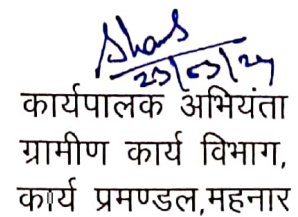 23/03/24
कार्यपालक अभियंता
ग्रामीण कार्य विभाग,
कार्य प्रमण्डल,महनार